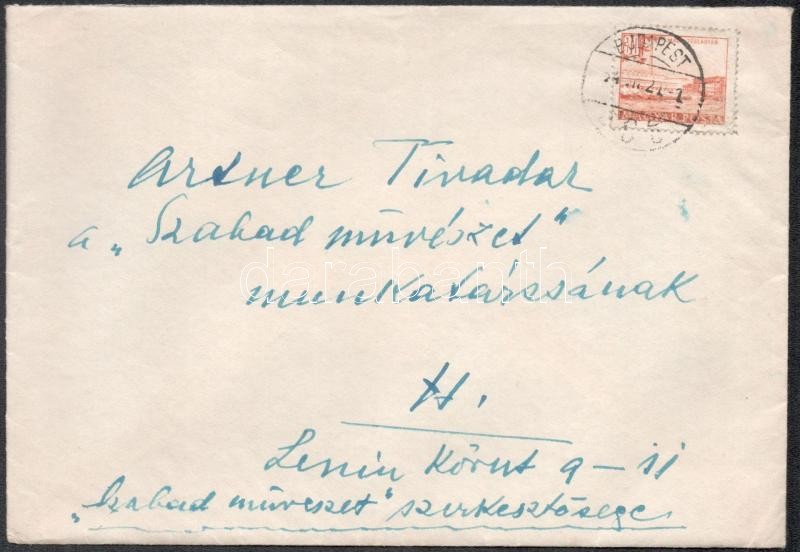 BUDAPEST
MAGYAR POSTA
Artner Tivadar
a „Szabad művészet"
munkatárssának
H.
Lenin Körut 9-11
„Szabad művészet" szerkesztősége
darabanth